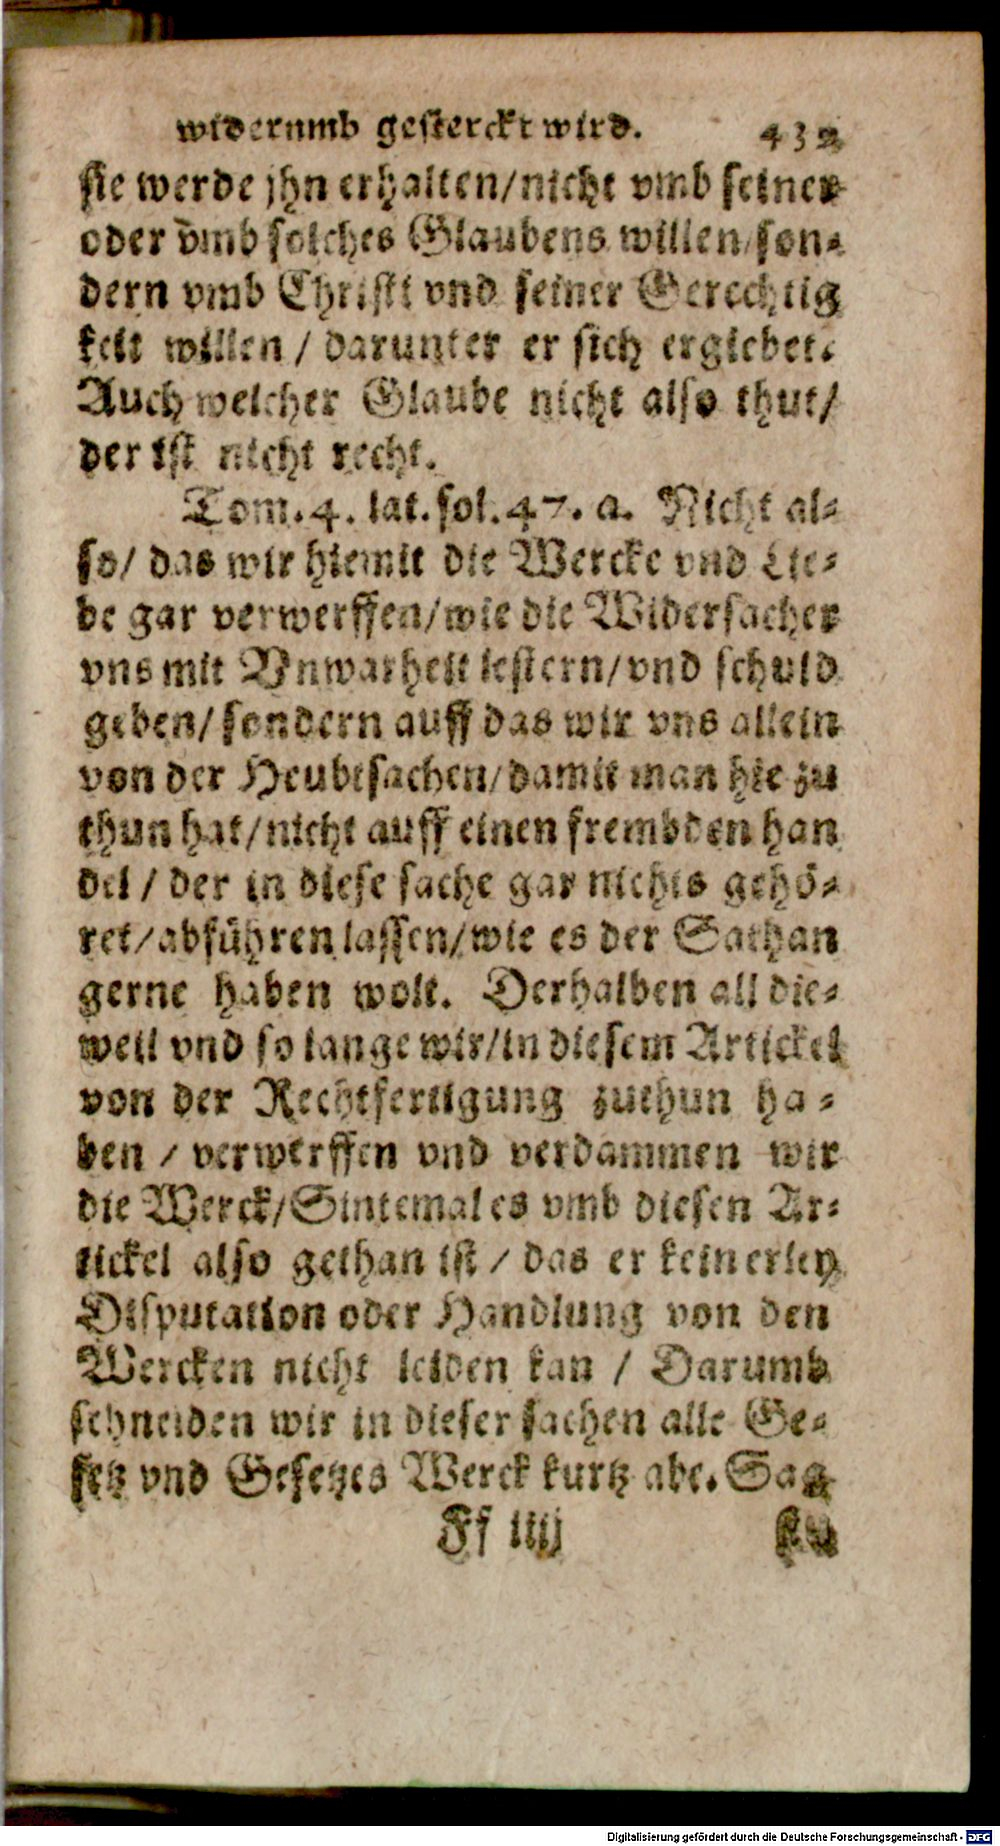 widerumb gesterckt wird. 432
sie werde jhn erhalten/nicht vmb seiner
oder vmb solches Glaubens willen/son⸗
dern vmb Christi vnd seiner Gerechtig
keit willen / darunter er sich ergiebet.
Auch welcher Glaube nicht also thut/
der ist nicht recht.
Tom. 4. lat. fol. 47. a. Nicht al⸗
so/ das wir hiemit die Wercke vnd Lie⸗
be gar verwerffen/wie die Widersacher
vns mit Vnwarheit lestern/vnd schuld
geben/sondern auff das wir vns allein
von der Heubtsachen/damit man hie zu
thun hat/nicht auff einen frembden han
del / der in diese sache gar nichts gehö⸗
ret/abführen lassen/wie es der Sathan
gerne haben wolt. Derhalben all die⸗
weil vnd so lange wir/in diesem Artickel
von der Rechtfertigung zuthun ha⸗
ben / verwerffen vnd verdammen wir
die Werck/Sintemal es vmb diesen Ar⸗
tickel also gethan ist / das er keinerley
Disputation oder Handlung von den
Wercken nicht leiden kan / Darumb
schneiden wir in dieser sachen alle Ge⸗
setz vnd Gesetzes Werck kurtz abe. Sag
Ff iiij
Digitalisierung gefördert durch die Deutsche Forschungsgemeinschaft - DFG